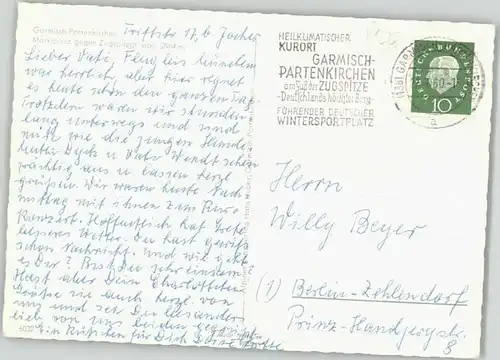 Garmisch-Partenkirchen
Marktplatz gegen Zugspitze
Triftstr. 17, b. Jocher
Lieber Vati, Flug bis München
war herrlich, aber hier regnet
es heute schon den ganzen Tag.
Trotzdem waren wir stundenlang
unterwegs und sind
nicht wie die jungen Hunde
prächtig aus u. lassen herzl.
grüßen. Wir waren heute Nachmittag
mit ihnen zum Kurkonzert.
Hoffentlich hat
besseres Wetter. Du hast gewiß
schon Nachricht. Und wie geht
es Dir? Bist Du sehr einsam
Hast aber Dein Charlottchen
Grüße sie auch herzl. von
uns und sei Du besonders
lieb von uns beiden gegrüßt.
Ein Küßchen für Dich
6032
HEILKLIMATISCHER
KURORT
GARMISCH-
PARTENKIRCHEN
am Fuß der ZUGSPITZE
-Deutschlands höchster Berg-
FÜHRENDER DEUTSCHER
WINTERSPORTPLATZ
DEUTSCHE BUNDESPOST
10
a
Herrn
Willy Beyer
(1) Berlin-Zehlendorf
Prinz-Handjerystr.
8